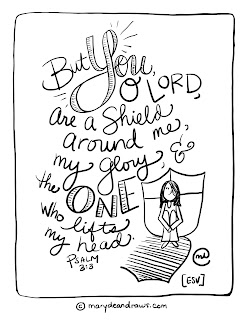 But You,
O LORD,
are a Shield
around me,
my glory, &
the ONE
who lifts
my head.
PSALM
3:3
me
[ESV]
© marydeandraws.com